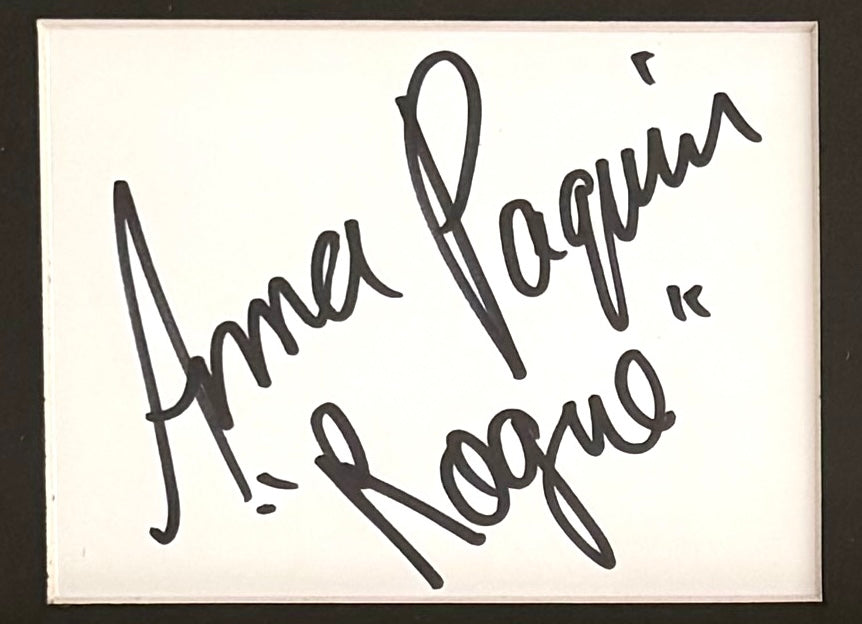 Anna Paquin
"Rogue"